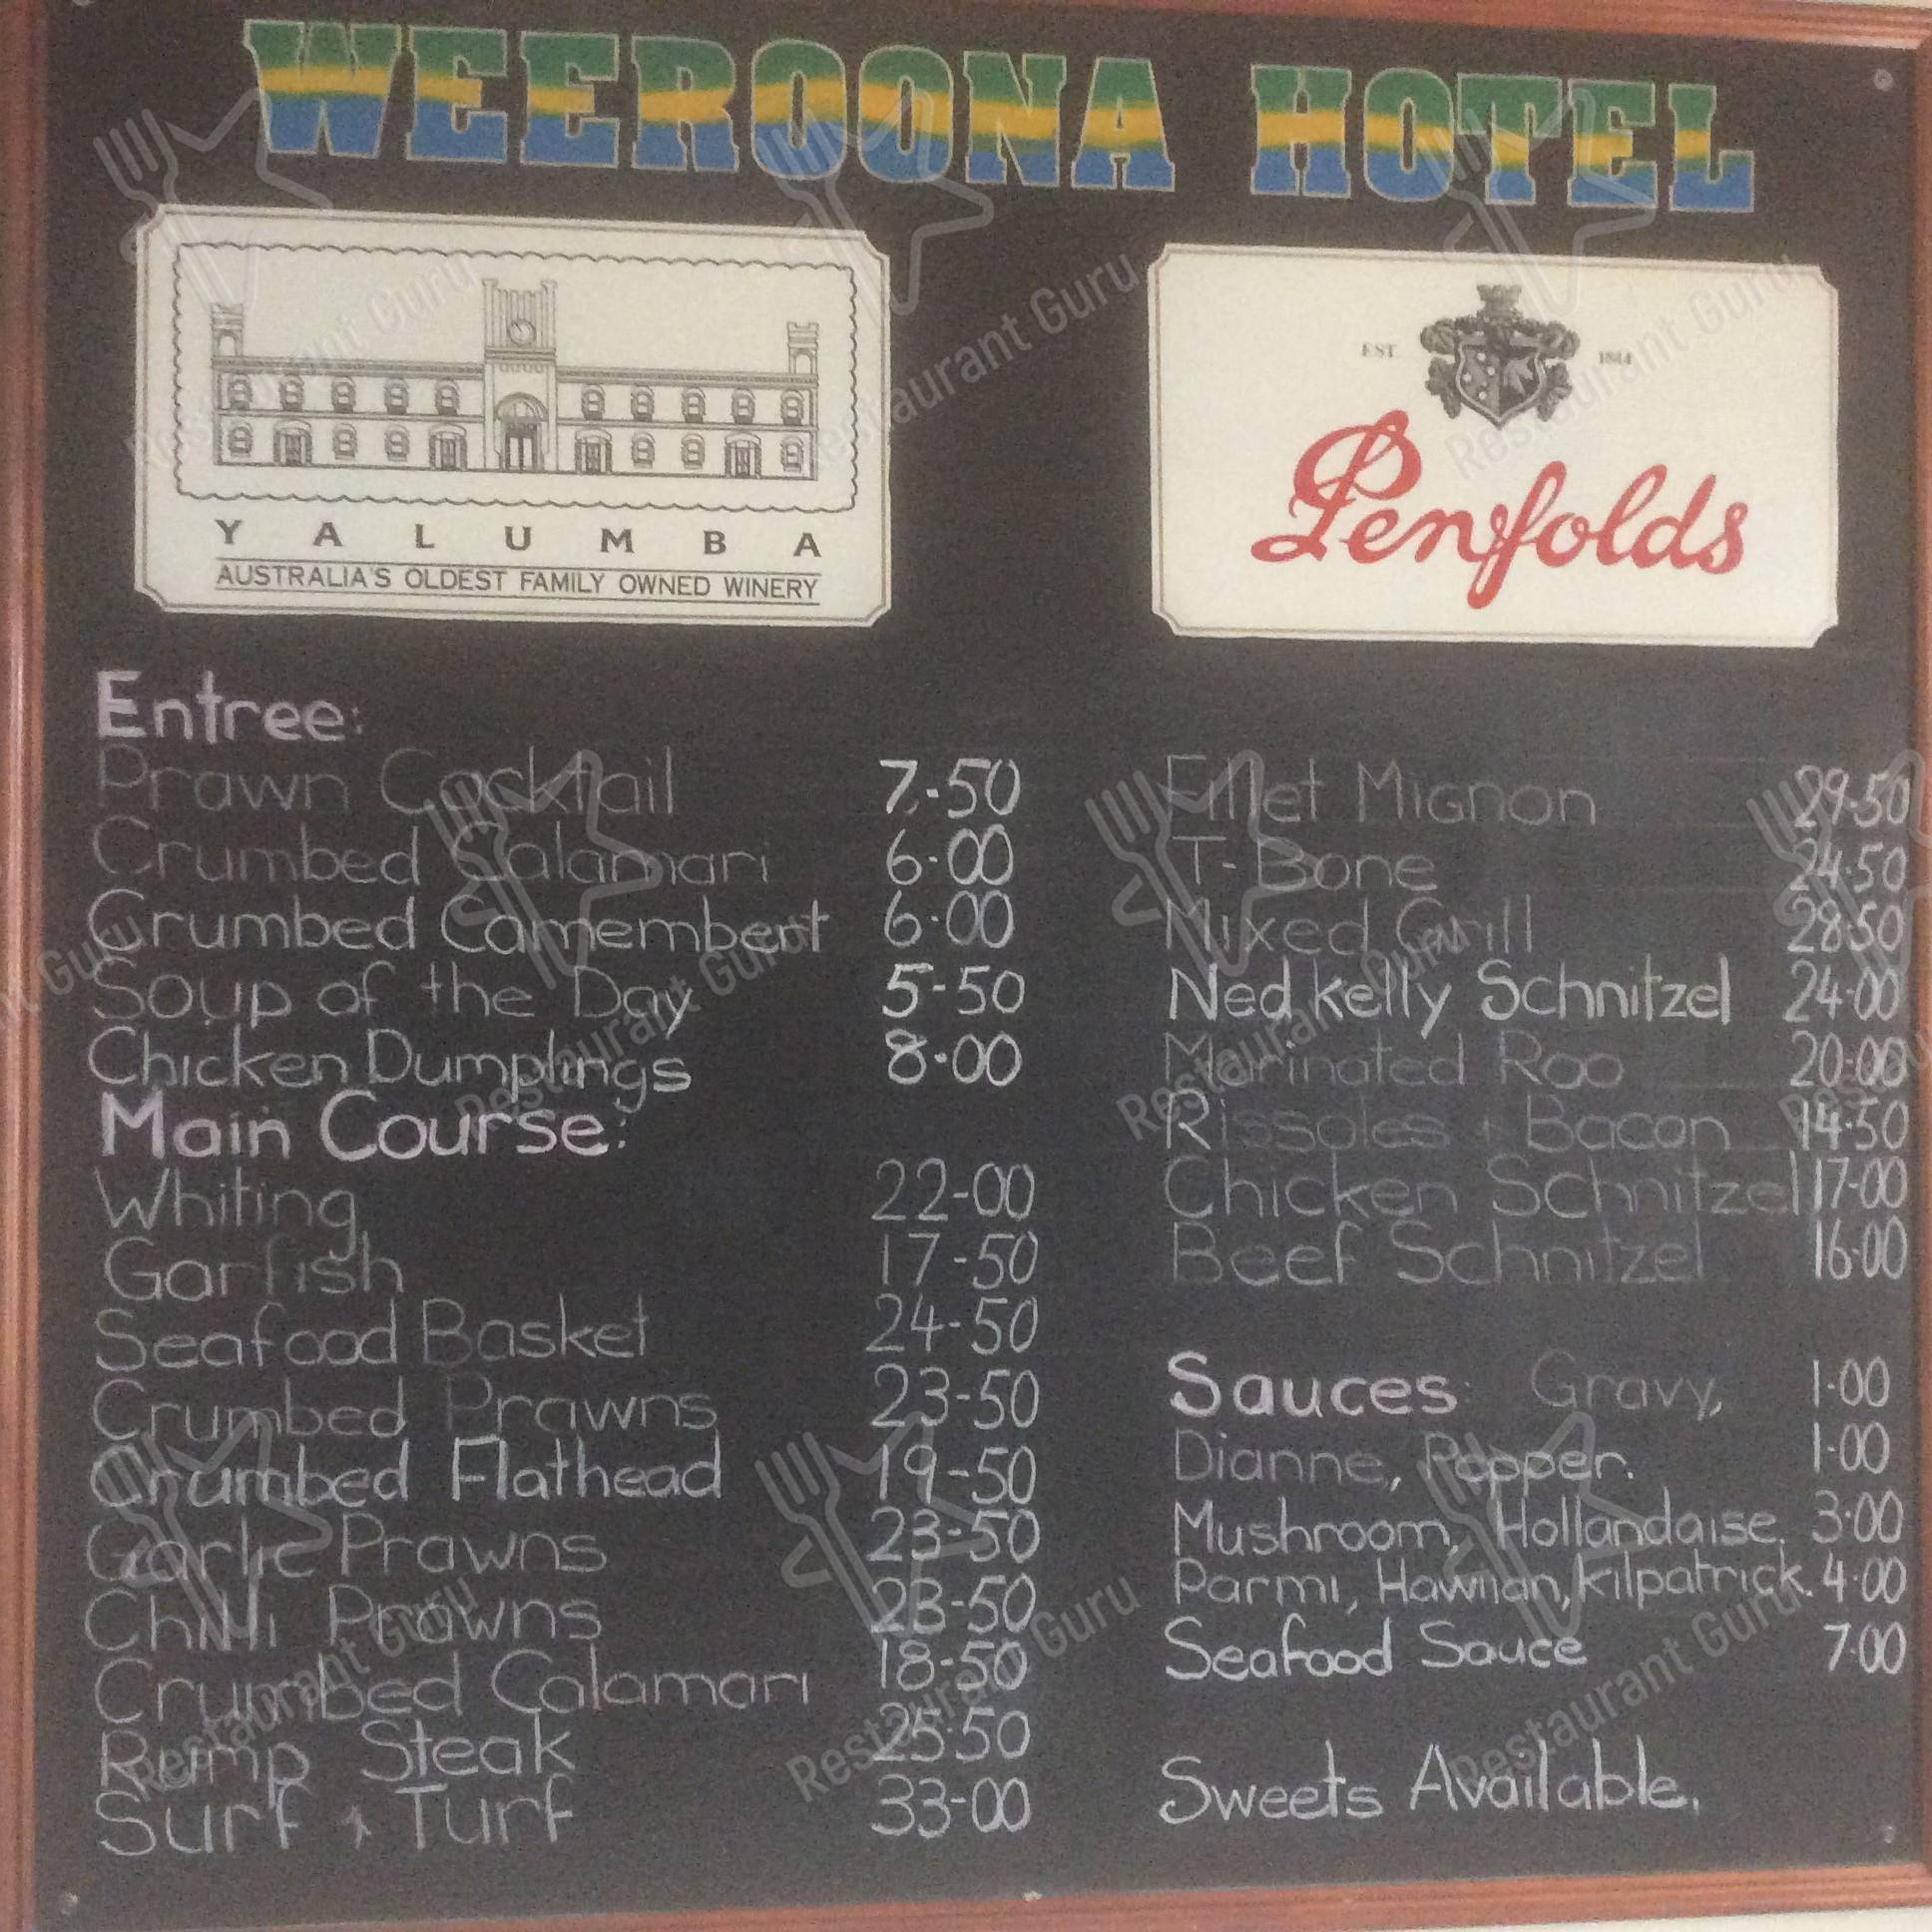 WEEROONA HOTEL
YALUMBA
AUSTRALIA'S OLDEST FAMILY OWNED WINERY
EST 1844
Penfolds
Entree:
Prawn Cocktail 7.50
Crumbed Calamari 6.00
Crumbed Camembert 6.00
Soup of the Day 5-50
Chicken Dumplings 8.00
Main Course:
Whiting 22-00
Garfish 17-50
Seafood Basket 24-50
Crumbed Prawns 23-50
Crumbed Flathead 19-50
Garlic Prawns 23-50
Chilli Prawns 23-50
Crumbed Calamari 18-50
Rump Steak 25.50
Surf & Turf 33-00
Fillet Mignon 29.50
T-Bone 24.50
Mixed Grill 28.50
Ned Kelly Schnitzel 24-00
Marinated Roo 20.00
Rissoles + Bacon 14.50
Chicken Schnitzel 17-00
Beef Schnitzel 16.00
Sauces: Gravy, 1.00
Dianne, Pepper. 1.00
Mushroom, Hollandaise. 3.00
Parmi, Hawiian, Kilpatrick. 4.00
Seafood Sauce 7.00
Sweets Available.
Restaurant Guru